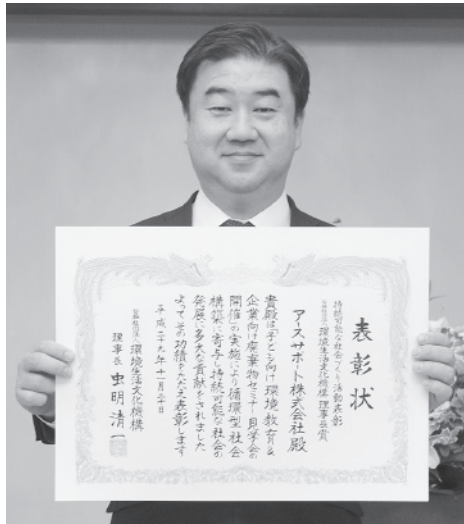 表彰状
持続可能な社会づくり活動表彰
公益社団法人環境生活文化機構 理事長賞
アースサポート株式会社 殿
貴殿は「子ども向け環境教育&
企業向け廃棄物セミナー・見学会の
開催」の実施により循環型社会
構築に寄与し持続可能な社会の
発展に多大な貢献をされました
よってその功績をたたえ表彰します
平成二十九年十一月二十日
公益社団法人環境生活文化機構
理事長 虫明清一